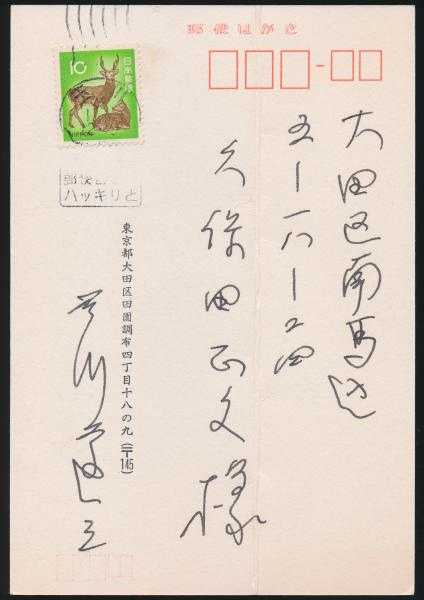 郵便はがき
10
日本郵便
NIPPON
ハッキリと
大田区南馬込
五ー一六ー二四
久保田正文様
東京都大田区田園調布四丁目十八の九(〒145)